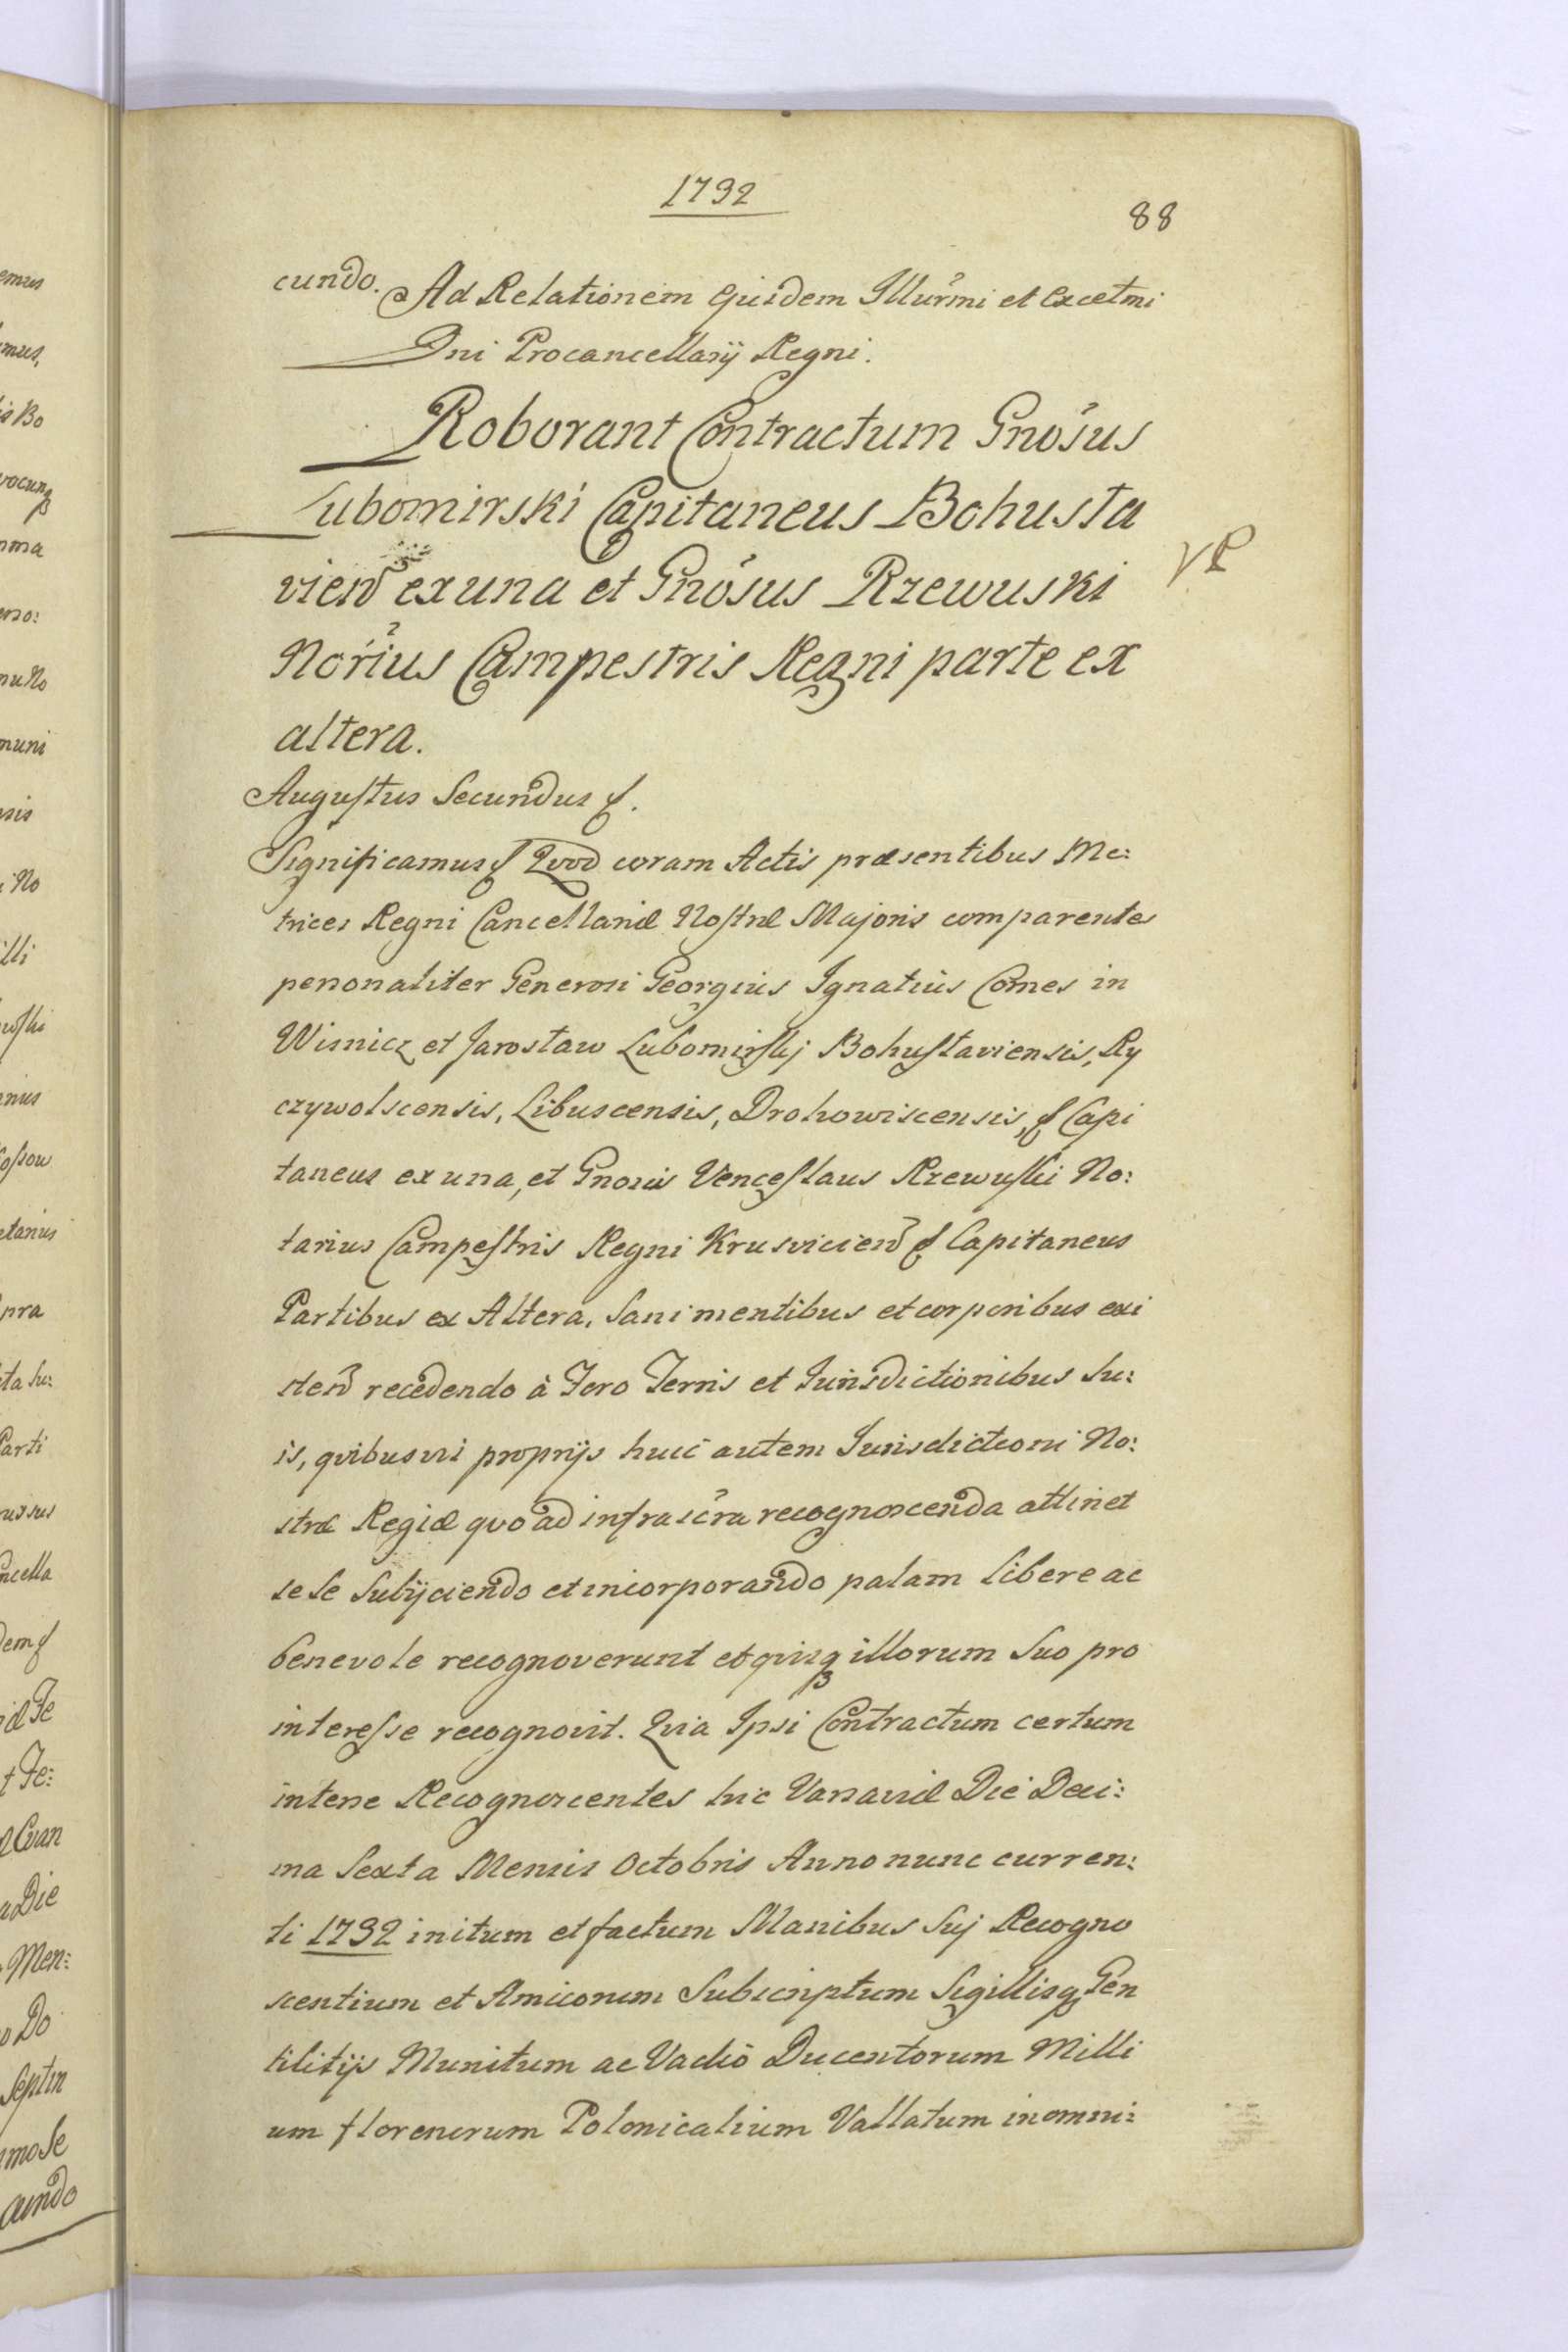 1732
88
cundo. Ad Relationem Ejusdem Illurmi et Excetmi
Dni Procancellarij Regni.
Roborant Contractum Gnosus
Lubomirski Capitaneus Bohusła
vien ex una et Gnosus Rzewuski
Norius Campestris Regni parte ex
altera.
Augustus Secundus
Significamus Qvod coram Actis præsentibus Me:
trices Regni Cancellariæ Nostræ Majoris comparentes
personaliter Generosi Georgius Ignatius Comes in
Wisnicz et Jarosław Lubomirskj Bohuslaviensis, Ry
czywolscensis, Libuscensis, Drohowiscensis, Capi
taneus ex una, et Gnosus Venceslaus Rzewuski No:
tarius Campestris Regni Krusvicien Capitaneus
Partibus ex Altera, Sani mentibus et corporibus exi
sten recedendo à Foro Terris et Jurisdictionibus Su:
is, qvibusvis proprijs huic autem Jurisdictioni No:
stræ Regiæ qvo ad infrascra recognoscenda attinet
se se Subijciendo et incorporando palam libere ac
benevole recognoverunt et qvisq illorum Suo pro
interesse recognovit. Qvia Ipsi Contractum certum
inter se Recognoscentes hic Varsaviæ Die Deci:
ma Sexta Mensis Octobris Anno nunc curren:
ti 1732 initum et factum Manibus Suj Recogno
scentium et Amicorum Subscriptum Sigillisq Gen
tilitijs Munitum ac Vadiô Ducentorum Milli
um florenorum Polonicalium Vallatum in omni: